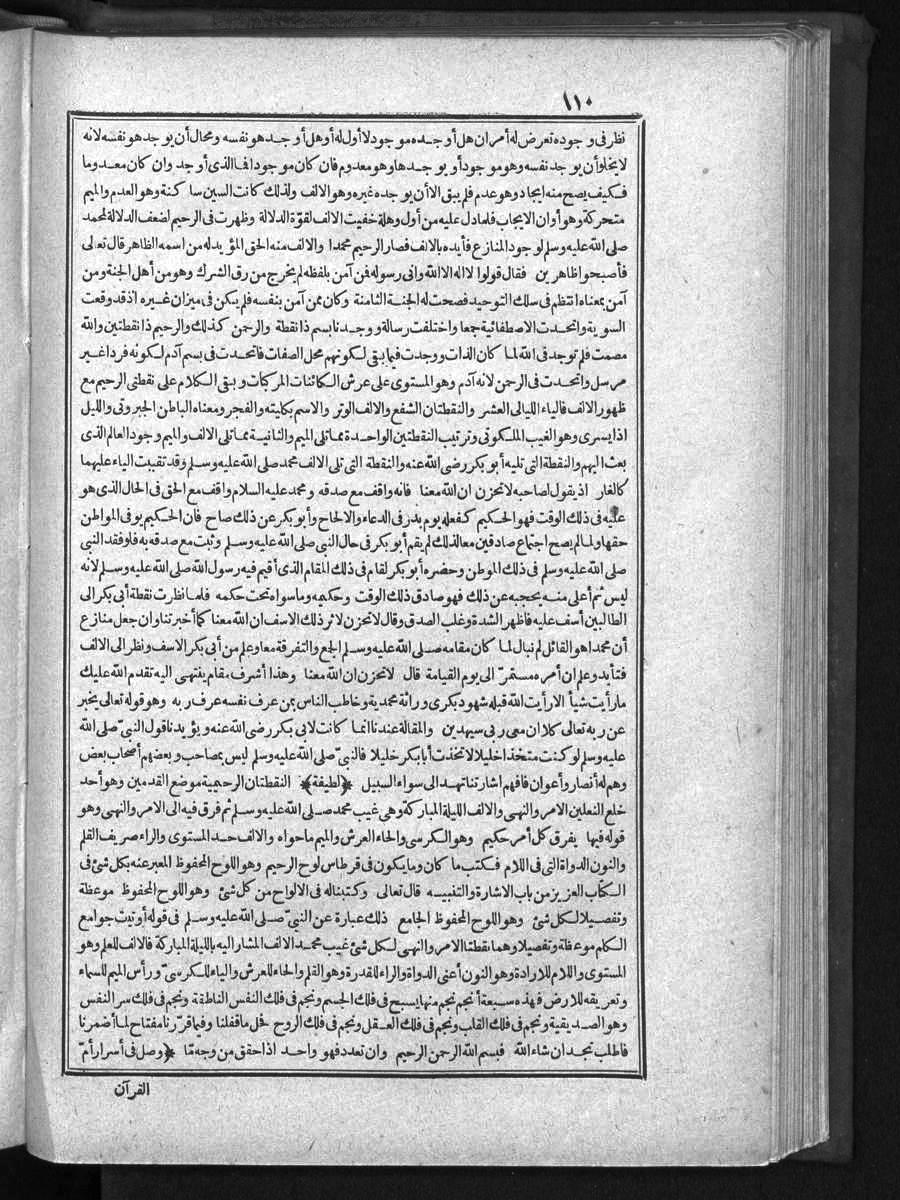 ١١٠
نظر فى وجوده تعرض له أمران هل أوجده موجود لا أول له أو هل أوجد هو نفسه ومحال أن يوجد هو نفسه لانه
لا يخلو أن يوجد نفسه وهو موجود أو يوجدها وهو معدوم فان كان موجودا فما الذى أوجد وان كان معدوما
فكيف يصح منه ايجاد وهو عدم فلم يبق الا أن يوجده غيره وهو الالف ولذلك كانت السين ساكنة وهو العدم والميم
متحركة وهو أوان الايجاب فلما دل عليه من أول وهلة خفيت الالف لقوة الدلالة وظهرت فى الرحيم لضعف الدلالة لمحمد
صلى الله عليه وسلم لوجود المنازع فأيده بالالف فصار الرحيم محمدا والالف منه الحق المؤيد له من اسمه الظاهر قال تعالى
فأصبحوا ظاهرين فقال قولوا لا اله الا الله وانى رسوله فمن آمن بلفظه لم يخرج من رق الشرك وهو من أهل الجنة ومن
آمن بمعناه انتظم فى سلك التوحيد فصحت له الجنة الثامنة وكان ممن آمن بنفسه فلم يكن فى ميزان غيره اذ قد وقعت
السوية واتحدت الاصطفائية جمعا واختلفت رسالة ووجدنا بسم ذا نقطة والرحمن كذلك والرحيم ذا نقطتين والله
مصمت فلم توجد فى الله لما كان الذات ووجدت فيما بقى لكونهم محل الصفات فاتحدت فى بسم آدم لكونه فردا غير
مرسل واتحدت فى الرحمن لانه آدم وهو المستوى على عرش الكائنات المركبات وبقى الكلام على نقطتى الرحيم مع
ظهور الالف فالياء الليالى العشر والنقطتان الشفع والالف الوتر والاسم بكليته والفجر ومعناه الباطن الجبروتى والليل
اذا يسرى وهو الغيب الملكوتى وترتيب النقطتين الواحدة مما تلى الميم والثانية مما تلى الالف والميم وجود العالم الذى
بعث اليهم والنقطة التى تليه أبو بكر رضى الله عنه والنقطة التى تلى الالف محمد صلى الله عليه وسلم وقد تقببت الياء عليهما
كالغار اذ يقول لصاحبه لا تحزن ان الله معنا فانه واقف مع صدقه ومحمد عليه السلام واقف مع الحق فى الحال الذى هو
عليه فى ذلك الوقت فهو الحكيم كفعله يوم بدر فى الدعاء والالحاح وأبو بكر عن ذلك صاح فان الحكيم يوفى المواطن
حقها ولما لم يصح اجتماع صادقين معا لذلك لم يقم أبو بكر فى حال النبى صلى الله عليه وسلم وثبت مع صدقه به فلو فقد النبى
صلى الله عليه وسلم فى ذلك الموطن وحضره أبو بكر لقام فى ذلك المقام الذى أقيم فيه رسول الله صلى الله عليه وسلم لانه
ليس ثم أعلى منه يحجبه عن ذلك فهو صادق ذلك الوقت وحكيمه وما سواه تحت حكمه فلما نظرت نقطة أبى بكر الى
الطالبين أسف عليه فاظهر الشدة وغلب الصدق وقال لا تحزن لاثر ذلك الاسف ان الله معنا كما أخبرتنا وان جعل منازع
أن محمدا هو القائل لم نبال لما كان مقامه صلى الله عليه وسلم الجمع والتفرقة معا وعلم من أبى بكر الاسف ونظر الى الالف
فتأيد وعلم ان أمره مستمر الى يوم القيامة قال لا تحزن ان الله معنا وهذا أشرف مقام ينتهى اليه تقدم الله عليك
ما رأيت شيأ الا رأيت الله قبله شهود بكرى وراثة محمدية وخاطب الناس بمن عرف نفسه عرف ربه وهو قوله تعالى يخبر
عن ربه تعالى كلا ان معى ربى سيهدين والمقالة عندنا انما كانت لابى بكر رضى الله عنه ويؤيدنا قول النبىّ صلى الله
عليه وسلم لو كنت متخذا خليلا لاتخذت أبا بكر خليلا فالنبىّ صلى الله عليه وسلم ليس بمصاحب وبعضهم أصحاب بعض
وهم له أنصار وأعوان فافهم اشارتنا تهد الى سواء السبيل ﴿لطيفة﴾ النقطتان الرحيمية موضع القدمين وهو أحد
خلع النعلين الامر والنهى والالف الليلة المباركة وهى غيب محمد صلى الله عليه وسلم ثم فرق فيه الى الامر والنهى وهو
قوله فيها يفرق كل أمر حكيم وهو الكرسى والحاء العرش والميم ما حواه والالف حد المستوى والراء صريف القلم
والنون الدواة التى فى اللام فكتب ما كان وما يكون فى قرطاس لوح الرحيم وهو اللوح المحفوظ المعبر عنه بكل شئ فى
الكتاب العزيز من باب الاشارة والتنبيه قال تعالى وكتبنا له فى الالواح من كل شئ وهو اللوح المحفوظ موعظة
وتفصيلا لكل شئ وهو اللوح المحفوظ الجامع ذلك عبارة عن النبىّ صلى الله عليه وسلم فى قوله أوتيت جوامع
الكلم موعظة وتفصيلا وهما نقطتا الامر والنهى لكل شئ غيب محمد الالف المشار اليه بالليلة المباركة فالالف للعلم وهو
المستوى واللام للارادة وهو النون أعنى الدواة والراء للقدرة وهو القلم والحاء للعرش والياء للكرسىّ ورأس الميم للسماء
وتعريقه للارض فهذه سبعة أنجم نجم منها يسبح فى فلك الجسم ونجم فى فلك النفس الناطقة ونجم فى فلك سر النفس
وهو الصديقية ونجم فى فلك القلب ونجم فى فلك العقل ونجم فى فلك الروح فحل ما قفلنا وفيما قرّرنا مفتاح لما أضمرنا
فاطلب تجد ان شاء الله فبسم الله الرحمن الرحيم وان تعدد فهو واحد اذا حقق من وجه مّا ﴿وصل فى أسرار أمّ
القرآن